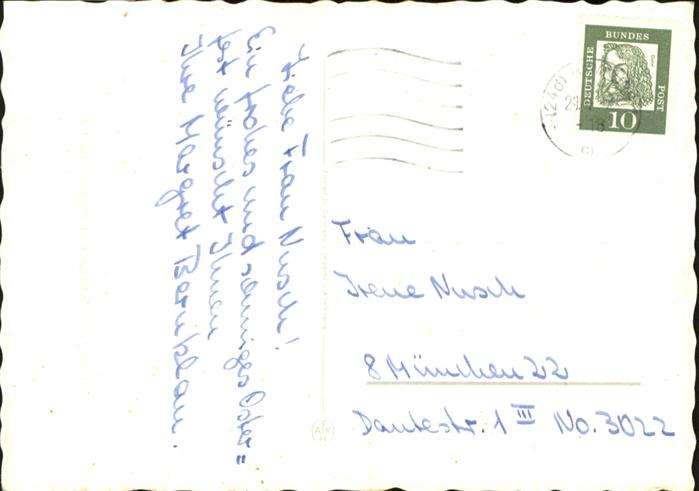 Liebe Frau Nusch!
Ein frohes und sonniges Oster=
fest wünscht Ihnen
Ihre Margret Berniklau.
DEUTSCHE
BUNDES
POST
10
Frau
Irene Nusch
8 München 22
Dantestr. 1 III No. 3022